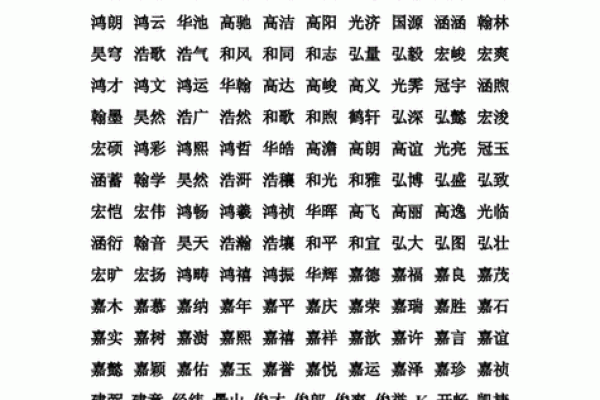 鸿朗 鸿云 华池 高驰 高洁 高阳 光济 国源 涵涵 翰林
昊穹 浩歌 浩气 和风 和同 和志 弘量 弘毅 宏峻 宏爽
鸿才 鸿文 鸿运 华翰 高达 高峻 高义 光霁 冠宇 涵煦
翰墨 昊然 浩广 浩然 和歌 和煦 鹤轩 弘深 弘懿 宏浚
宏硕 鸿彩 鸿熙 鸿哲 华皓 高澹 高朗 高谊 光亮 冠玉
涵蓄 翰学 昊然 浩涆 浩穰 和光 和雅 弘博 弘盛 弘致
宏恺 宏伟 鸿畅 鸿羲 鸿祯 华晖 高飞 高丽 高逸 光临
涵衍 翰音 昊天 浩瀚 浩壤 和平 和宜 弘大 弘图 弘壮
宏旷 宏扬 鸿畴 鸿禧 鸿振 华辉 嘉德 嘉福 嘉良 嘉茂
嘉木 嘉慕 嘉纳 嘉年 嘉平 嘉庆 嘉荣 嘉瑞 嘉胜 嘉石
嘉实 嘉树 嘉澍 嘉熙 嘉禧 嘉祥 嘉歆 嘉许 嘉言 嘉谊
嘉懿 嘉颖 嘉佑 嘉玉 嘉誉 嘉悦 嘉运 嘉泽 嘉珍 嘉祯